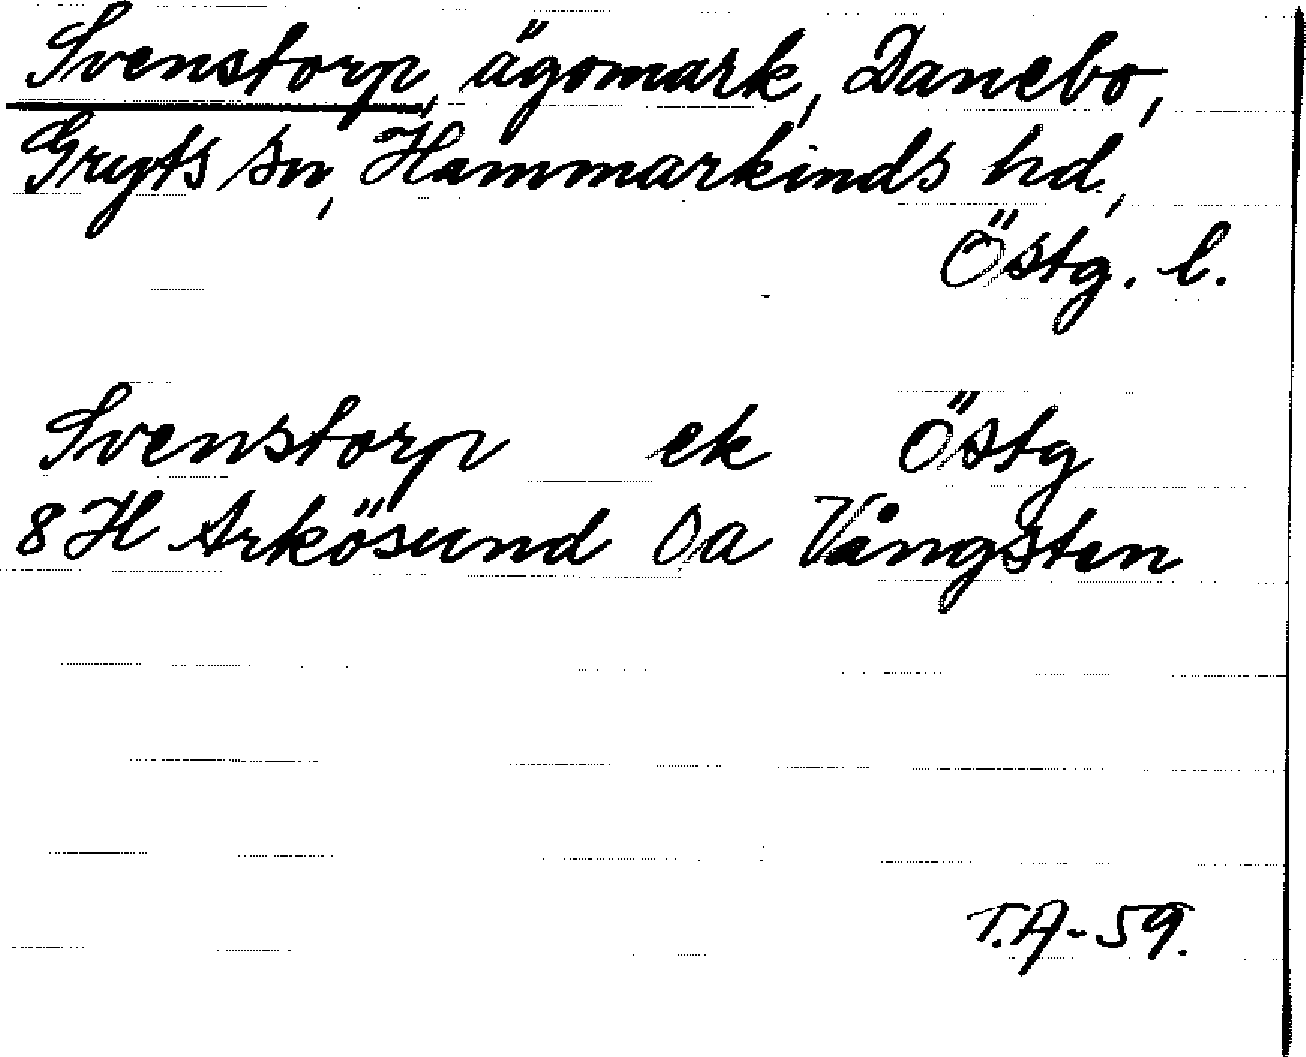 Svenstorp, ägomark, Danebo,
Gryts sn, Hammarkinds hd,
Östg. l.
Svenstorp ek Östg
8 H Arkösund Oa Vångsten
T.A-59.